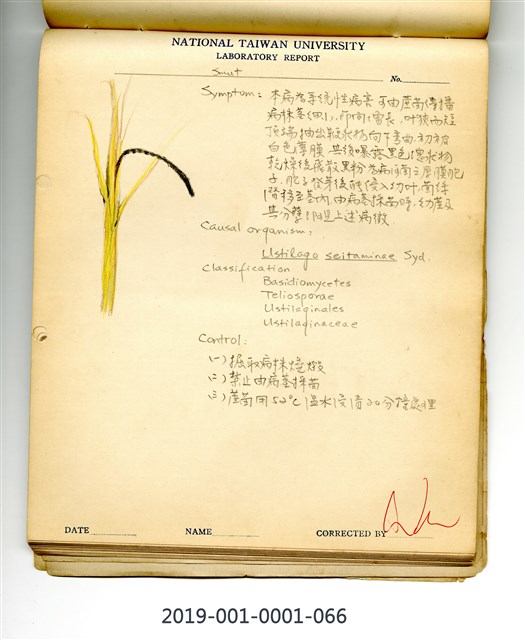 NATIONAL TAIWAN UNIVERSITY
LABORATORY REPORT
Smut No.
Symptom: 本病為系統性病害 可由蔗苗傳播
病株莖細小, 節間徒長, 叶狹而短
頂端抽出鞭狀物向下弯曲, 初被
白色薄膜 其後曝露黑色
乾燥後飛散黑粉 為病菌之厚膜胞
子, 胞子發芽後 侵入幼叶, 菌絲
移至莖內 由病莖採苗時, 幼莖及
其分蘗 上述病徵.
Causal organism:
Ustilago seitaminae Syd.
Classification
Basidiomycetes
Teliosporae
Ustilaginales
Ustilaginaceae
Control:
(一) 掘取病株燒燬
(二) 禁止由病莖採苗
(三) 蔗苗用52°C溫水浸漬20分鐘處理
DATE NAME CORRECTED BY
2019-001-0001-066